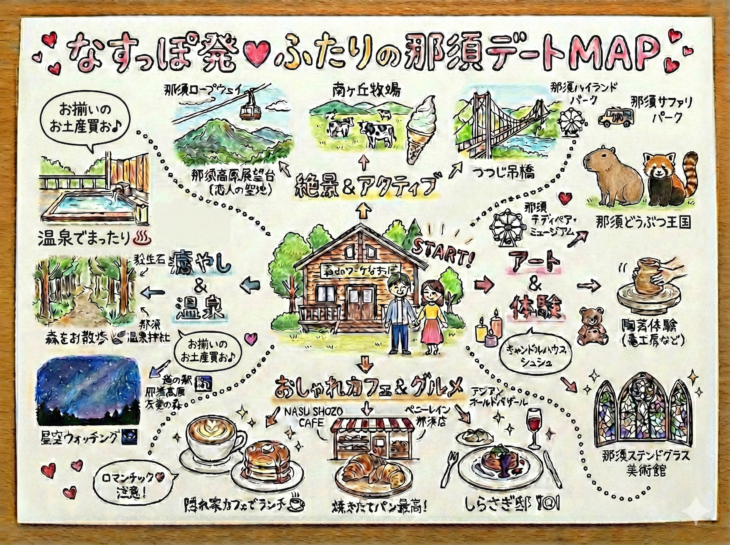 なすっぽ発♥ふたりの那須デートMAP
お揃いの
お土産買お♪
那須ロープウェイ
那須高原展望台
(恋人の聖地)
南ヶ丘牧場
つつじ吊橋
那須ハイランド
パーク
那須サファリ
パーク
絶景&アクティブ
那須どうぶつ王国
温泉でまったり♨
殺生石
癒やし
&
温泉
森をお散歩
那須
温泉神社
お揃いの
お土産買お♪
START!
那須
テディベア・
ミュージアム
アート
&
体験
陶芸体験
キャンドルハウス
シュシュ
道の駅
那須高原
友愛の森
星空ウォッチング
おしゃれカフェ&グルメ
NASU SHOZO
CAFE
ペニーレイン
那須店
アジアン
オールドバザール
那須ステンドグラス
美術館
ロマンチック♥
注意!
隠れ家カフェでランチ
焼きたてパン最高!
しらさぎ邸